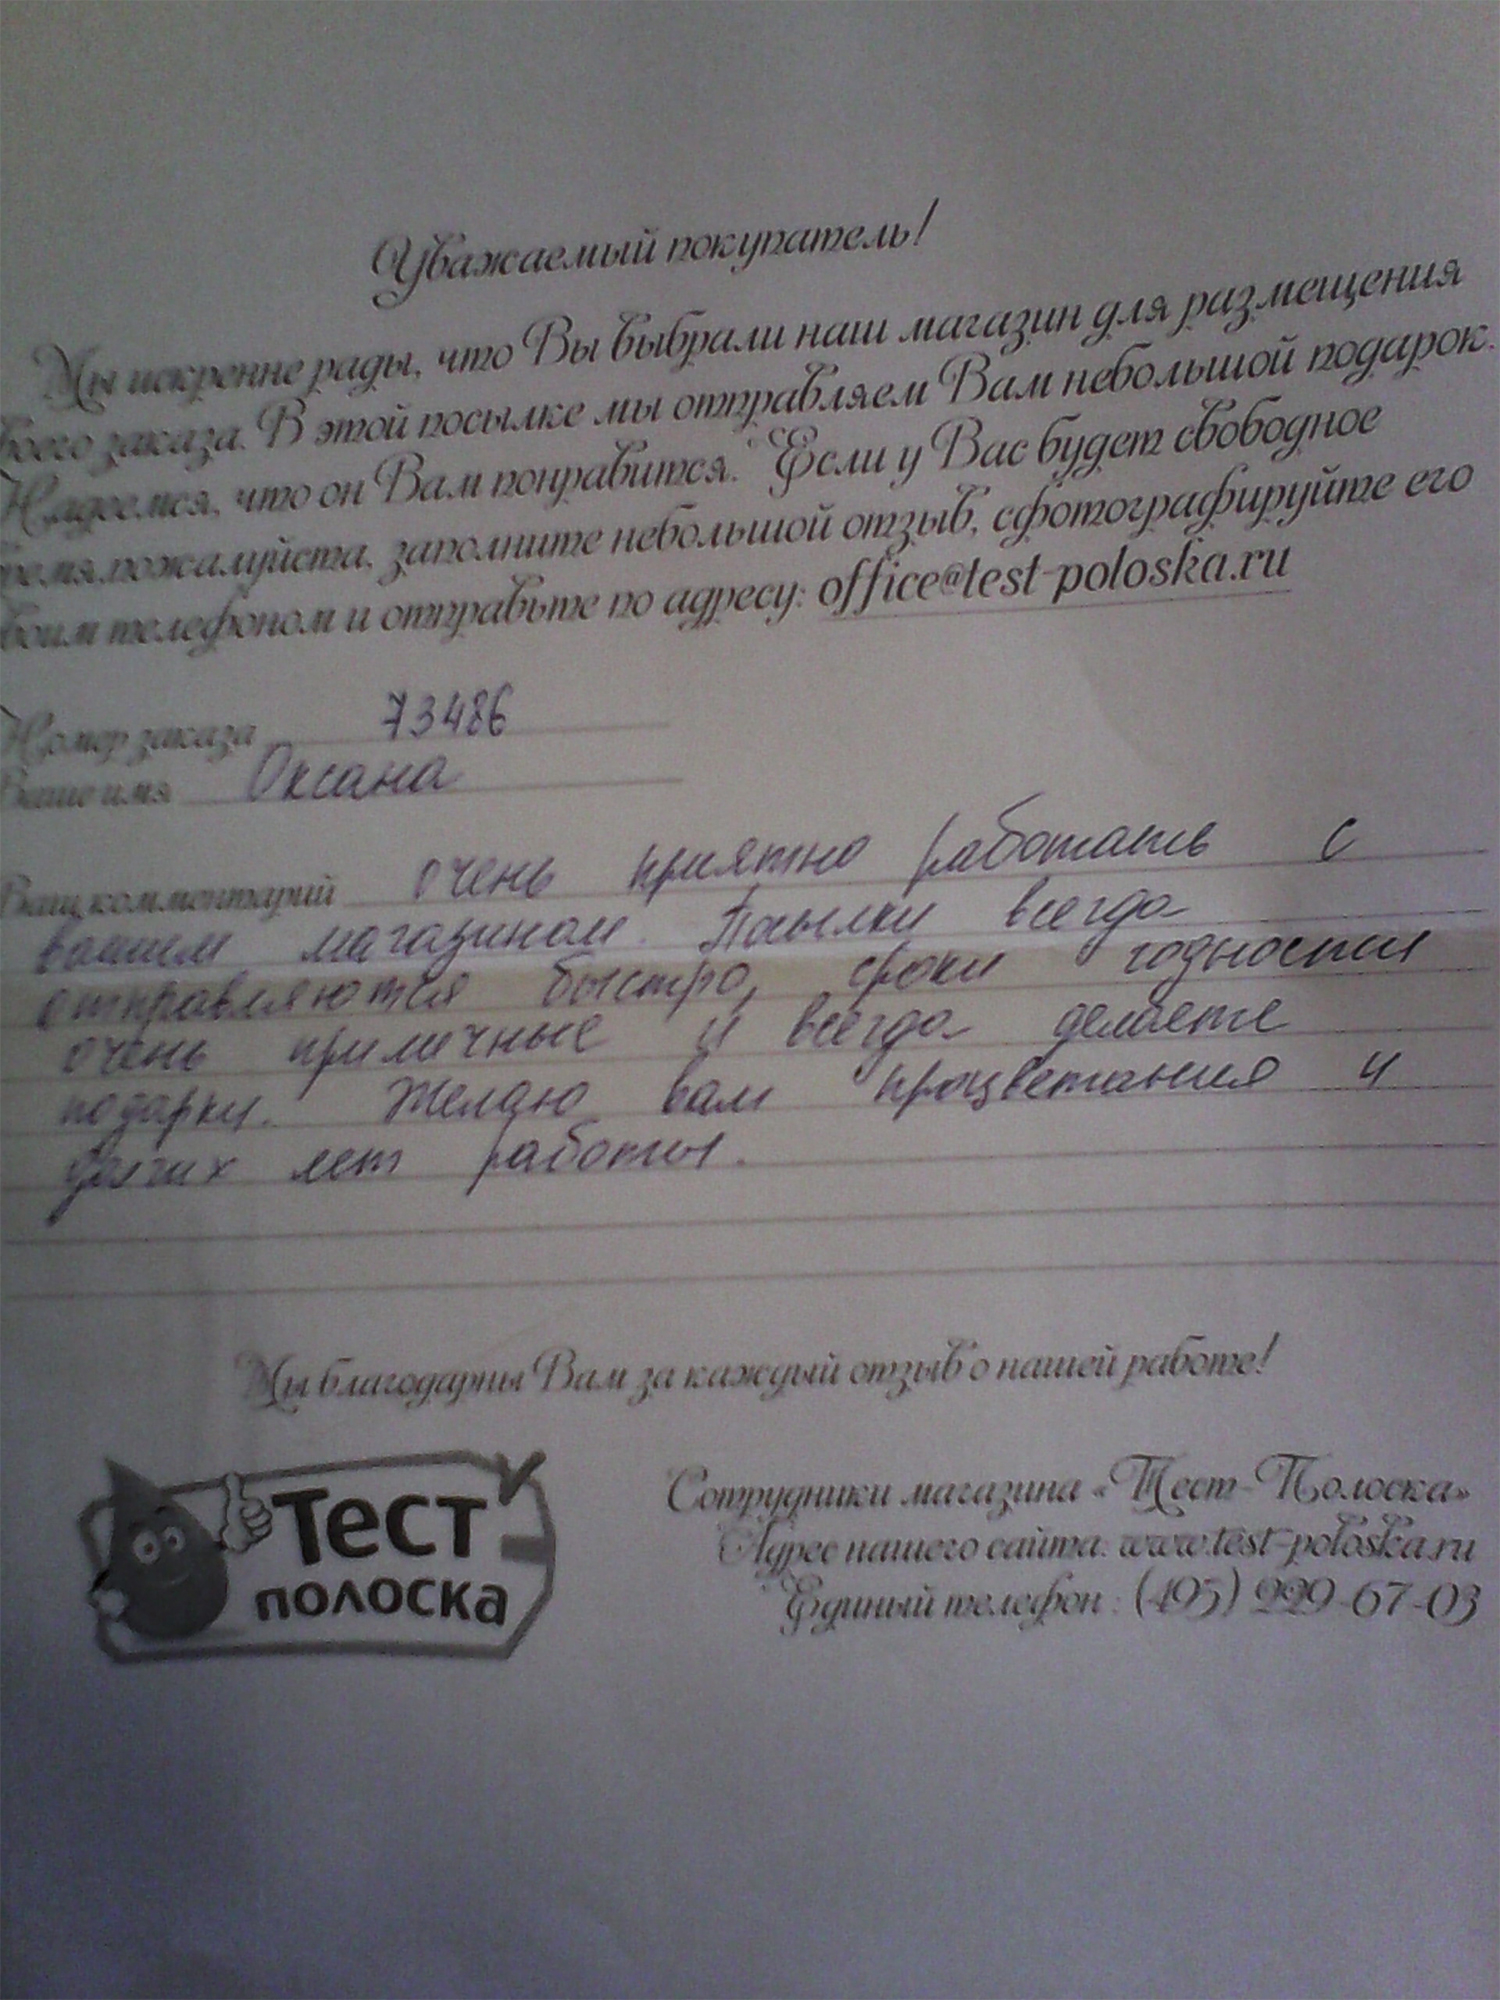 Уважаемый покупатель!
Мы искренне рады, что Вы выбрали наш магазин для размещения
воего заказа. В этой посылке мы отправляем Вам небольшой подарок.
Надеемся, что он Вам понравится. Если у Вас будет свободное
ремя, пожалуйста, заполните небольшой отзыв, сфотографируйте его
воим телефоном и отправьте по адресу: office@test-poloska.ru
Номер заказа 73486
Ваше имя Оксана
Ваш комментарий очень приятно работать с
вашим магазином. Посылки всегда
отправляются быстро, сроки годности
очень приличные и всегда делаете
подарки. Желаю вам процветания и
долгих лет работы.
Мы благодарны Вам за каждый отзыв о нашей работе!
Тест
полоска
Сотрудники магазина «Тест-Полоска»
Адрес нашего сайта: www.test-poloska.ru
Единый телефон : (495) 229-67-03